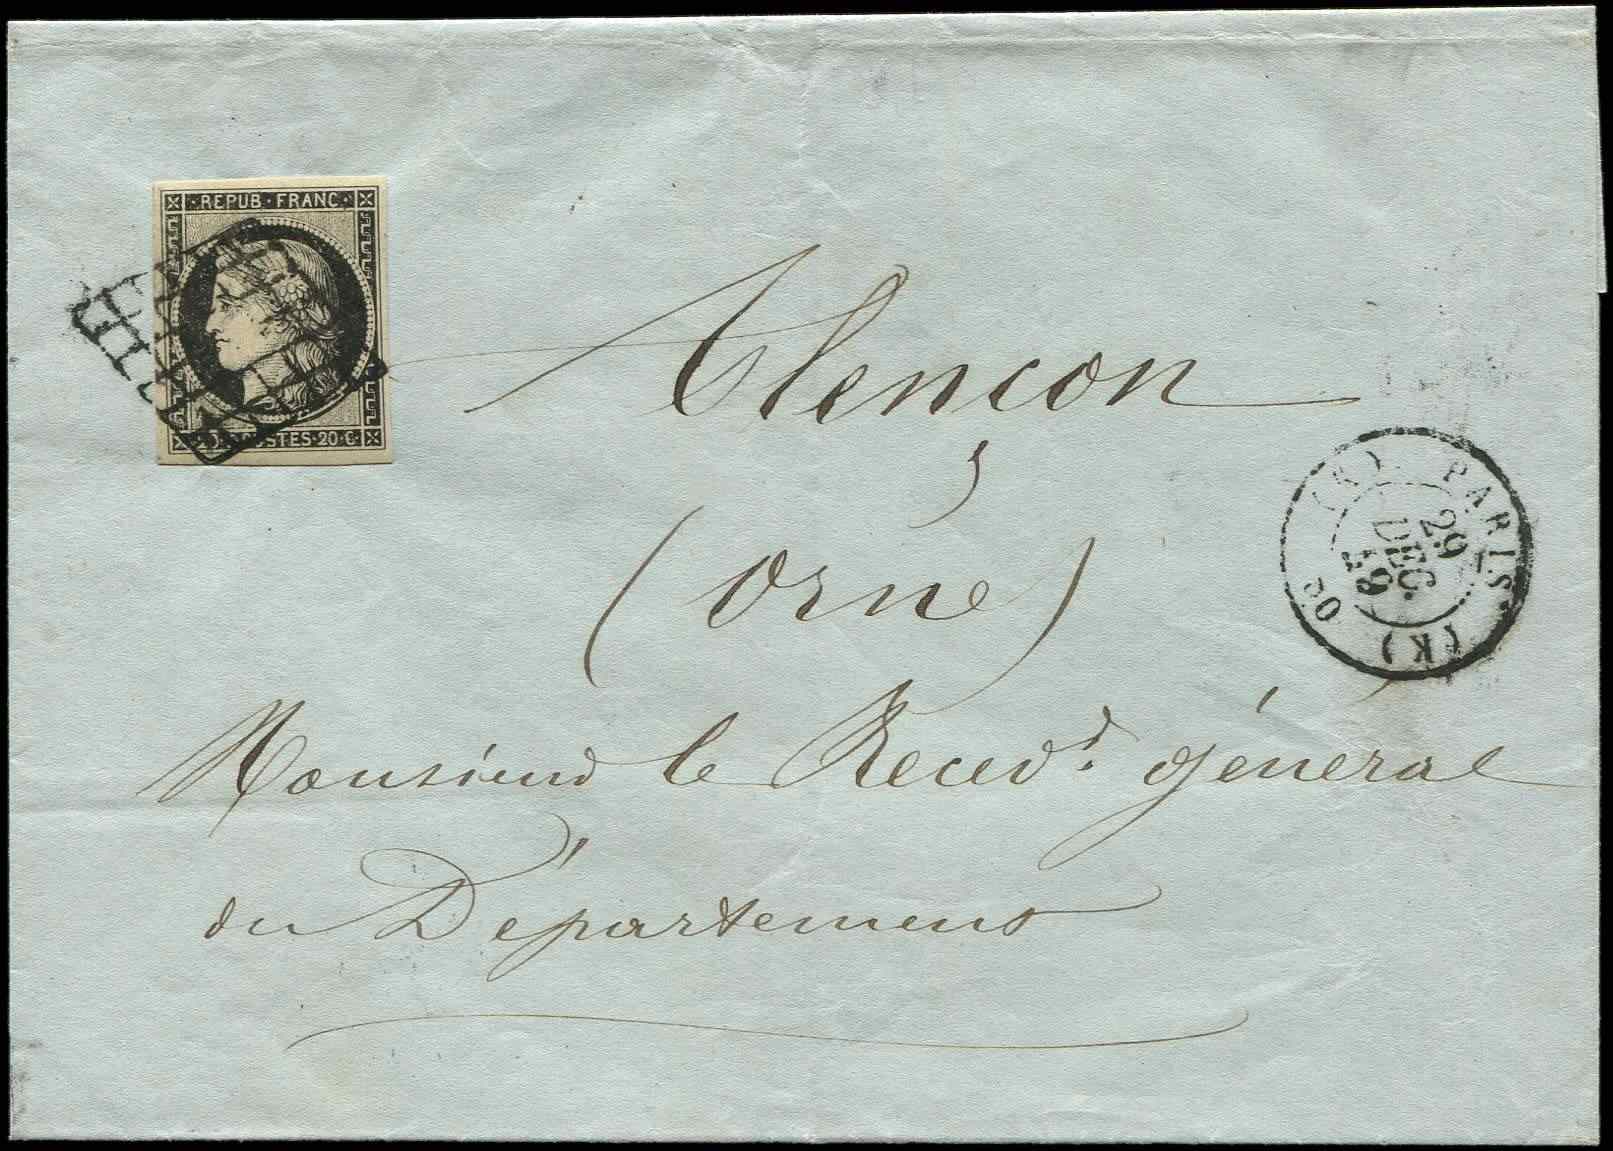 REPUB · FRANC
POSTES · 20 · C
Alençon
(Orne)
Monsieur le Recev.r général
du Département
PARIS
(K)
(K)
29
DEC.
49